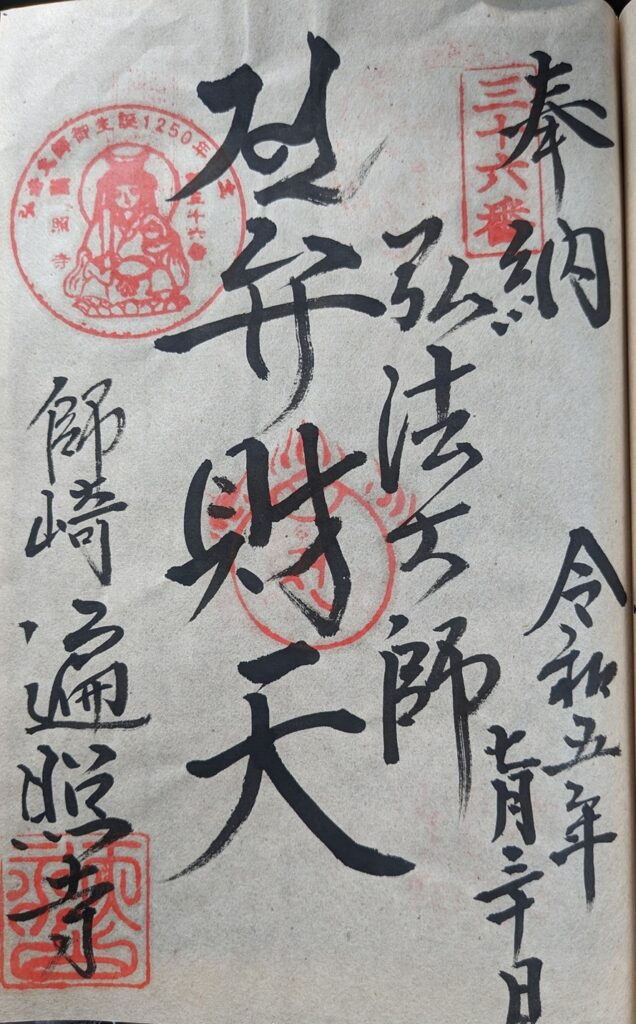 奉納
三十六番
令和五年
七月三十日
弘法大師
弁財天
弘法大師御生誕1250年
三十六番
遍照寺
師崎 遍照寺